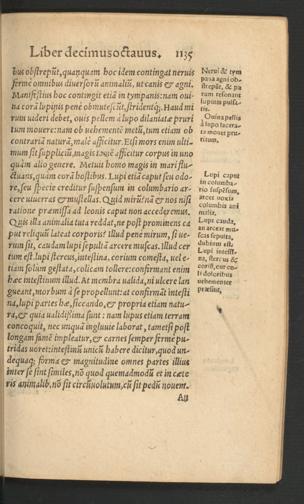 Liber decimusoctauus. 1135
bus obstrepūt, quanquam hoc idem contingat neruis
fermè omnibus diuersorū animaliū, ut canis & agni.
Manifestius hoc contingit etiā in tympanis: nam oui-
na corā lupinis penè obmutescūt, stridentq́;. Haud mi
rum uideri debet, ouis pellem à lupo dilaniatæ pruri
tum mouere: nam ob uehementē metū, tum etiam ob
contrariā naturā, malè afficitur. Etsi mors enim ulti-
mum sit supplicium, magis tamē afficitur corpus in uno
quàm alio genere. Metuit homo magis in mari flu-
ctuans, quàm corā hostibus. Lupi etiā caput seu odo-
re, seu specie creditur suspensum in columbario ar-
cere uiuerras & mustellas. Quid mirū? nā & nos nisi
ratione præmissa ad leonis caput non accederemus.
Quis illa animalia tuta reddat, ne post prominens ca
put reliquū lateat corporis? Illud penè mirum, si ue-
rum sit, caudam lupi sepultā arcere muscas. Illud cer
tum est lupi stercus, intestina, corium comesta, uel e-
tiam solum gestata, colicam tollere: confirmant enim
hæc intestinum illud. At membra ualida, ni ulcere lan
gueant, morbum à se propellunt: at confirmāt intesti
na, lupi partes hæ, siccando, & propria etiam natu-
ra, & quia ualidissima sunt: nam lupus etiam terram
concoquit, nec unquā ingluuie laborat, tametsi post
longam famē impleatur, & carnes semper fermè pu-
tridas uoret: intestinū unicū habere dicitur, quod un-
dequaq; forma & magnitudine omnes partes illius
inter se sint similes, nō quod quemadmodū et in cæte
ris animalib. nō sit circūuolutum, cū sit pedū nouem.
Neruū & tym
pana agni ob-
strepūt, & pa
rum resonant
lupinis pulsa-
tis.
Ouina pellis
à lupo lacera-
ta mouet pru-
ritum.
Lupi caput
in columba-
rio suspēsum,
arcet noxia
columbis ani
malia.
Lupi cauda,
an arceat mu-
scas sepulta,
dubium est.
Lupi intesti-
na, stercus &
coriū, cur co-
li doloribus
uehementer
præsint,